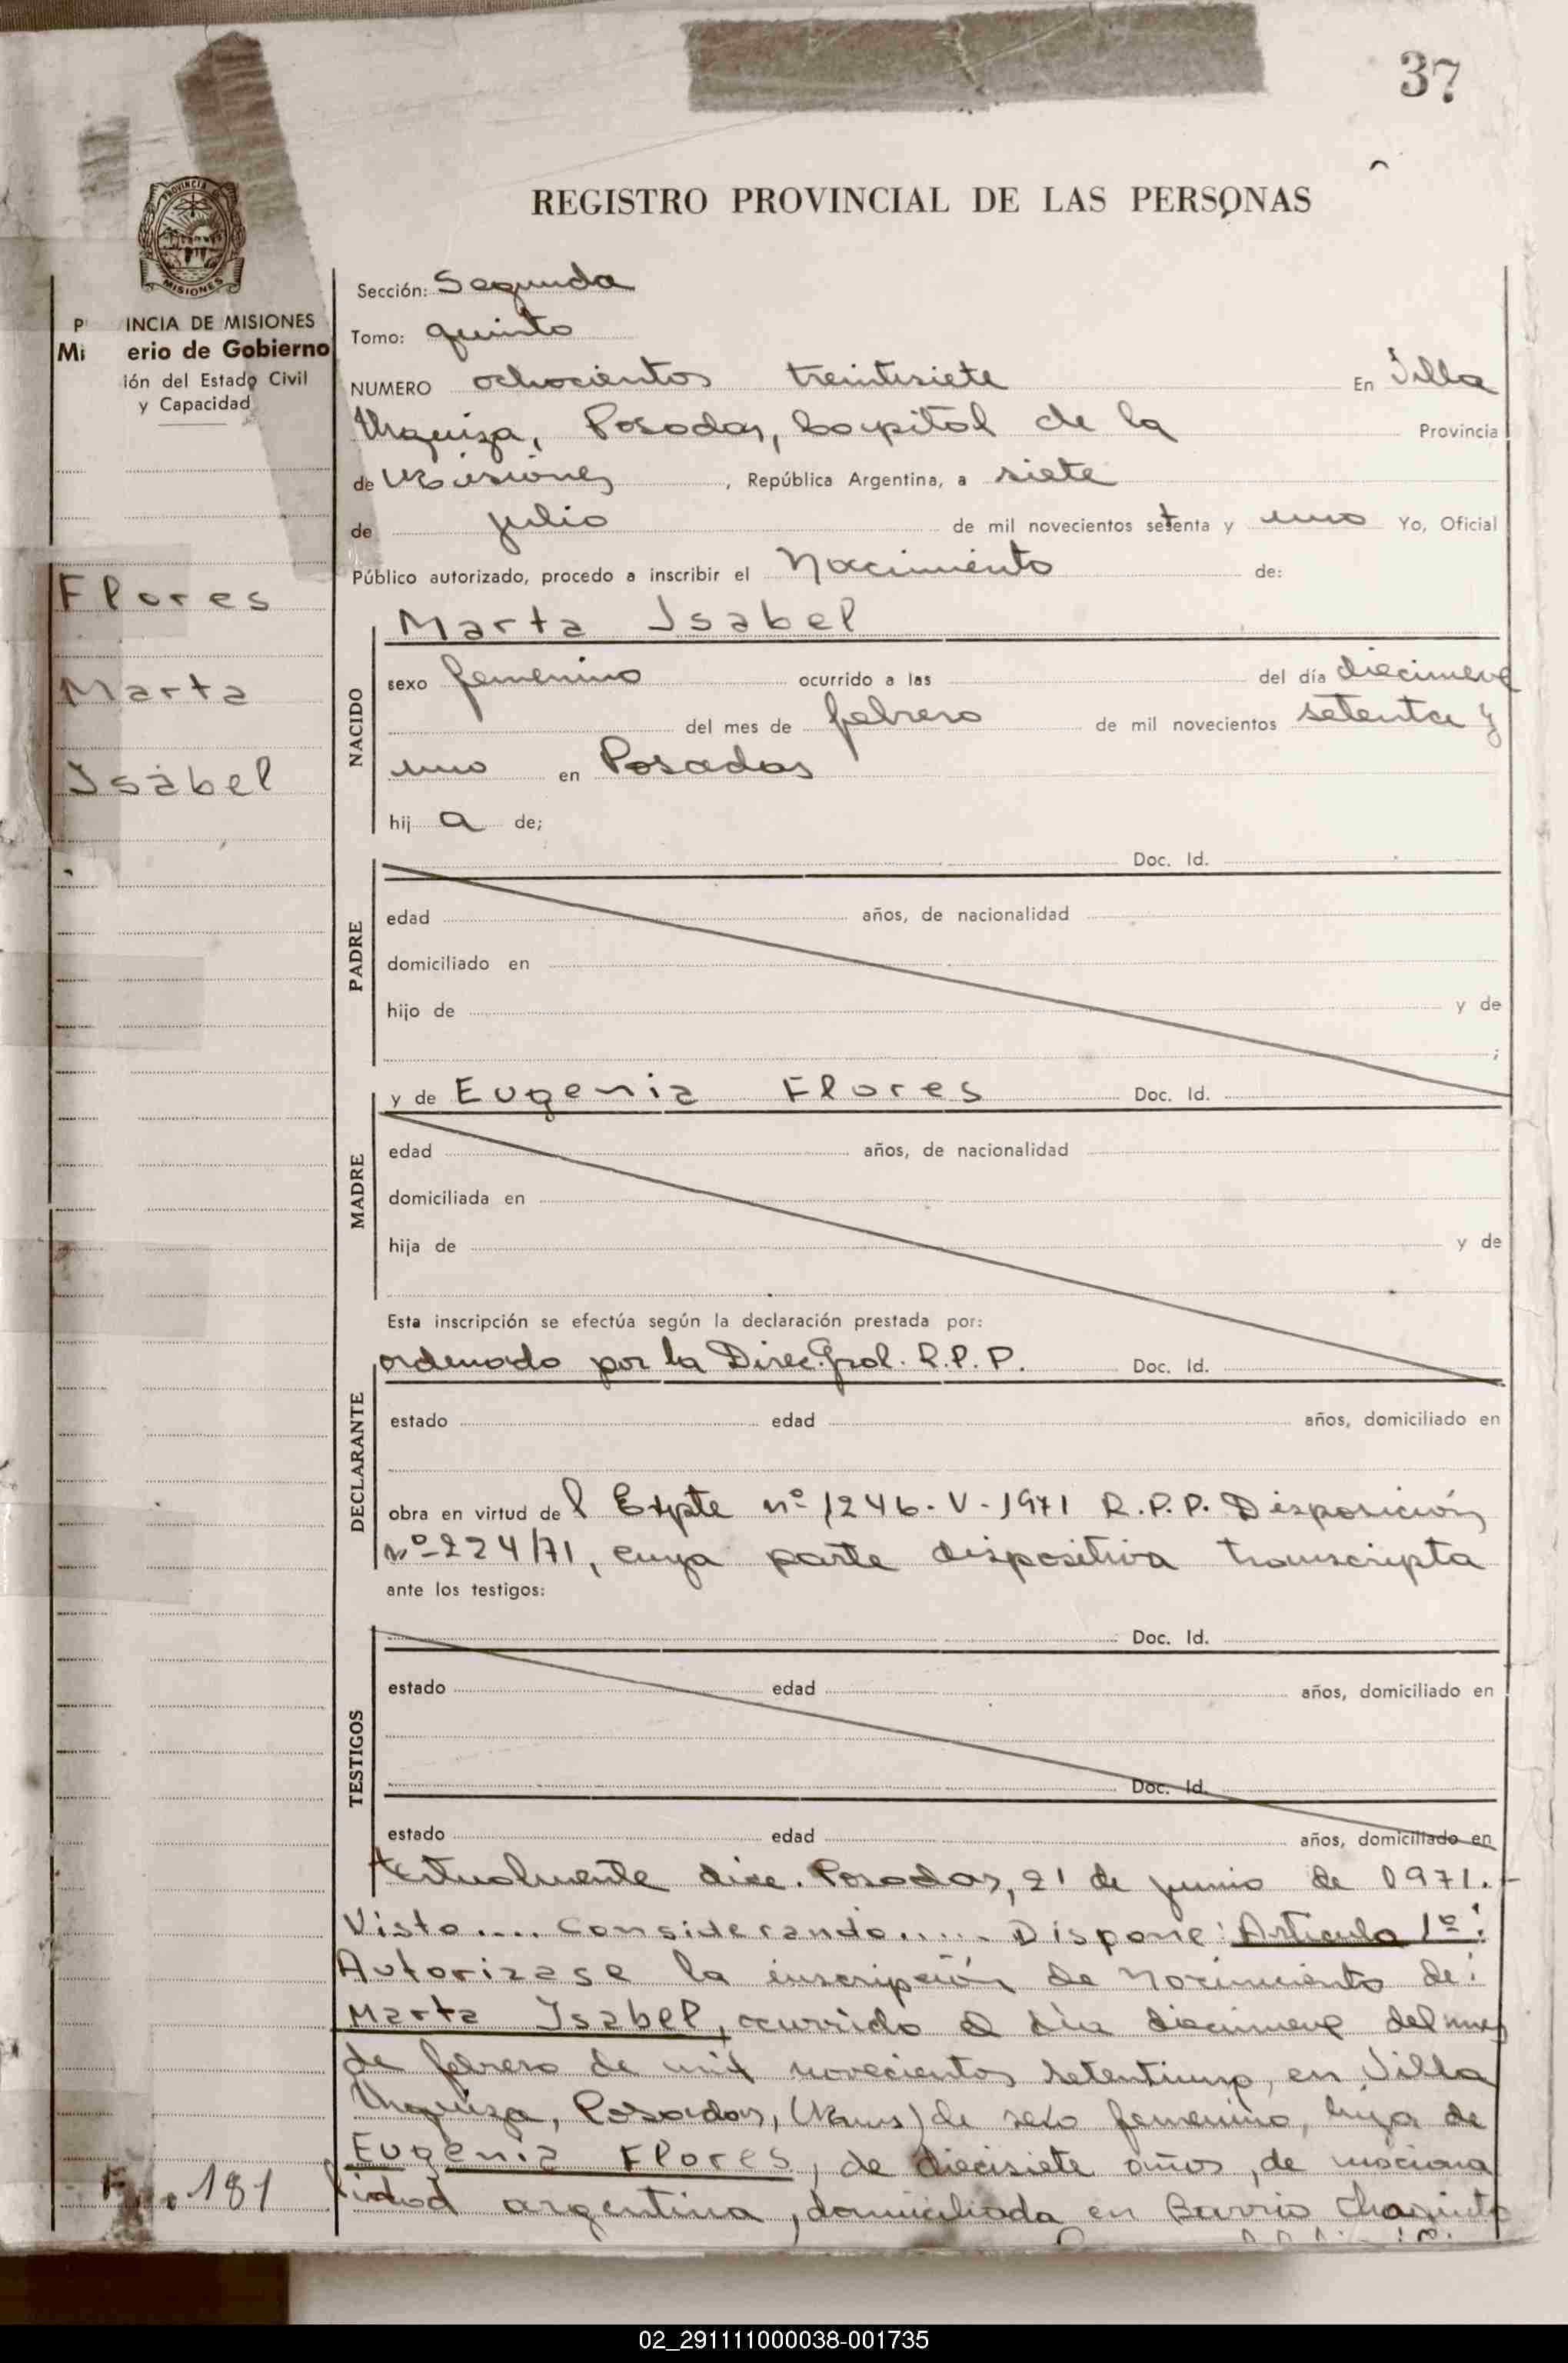 37
REGISTRO PROVINCIAL DE LAS PERSONAS
PROVINCIA DE
MISIONES
P INCIA DE MISIONES
Mi erio de Gobierno
ión del Estado Civil
y Capacidad
Flores
Marta
Isabel
Sección: Segunda
Tomo: quinto
NUMERO ochocientos treintisiete En Villa
Urquiza, Posadas, Capital de la Provincia
de Misiones, República Argentina, a siete
de julio de mil novecientos setenta y uno Yo, Oficial
Público autorizado, procedo a inscribir el Nacimiento de:
NACIDO
Marta Isabel
sexo femenino ocurrido a las del día diecinueve
del mes de febrero de mil novecientos setenta y
uno en Posadas
hij a de;
PADRE
Doc. Id.
edad años, de nacionalidad
domiciliado en
hijo de y de
;
MADRE
y de Eugenia Flores Doc. Id.
edad años, de nacionalidad
domiciliada en
hija de y de
Esta inscripción se efectúa según la declaración prestada por:
DECLARANTE
ordenado por la Direc. Gral. R.P.P. Doc. Id.
estado edad años, domiciliado en
obra en virtud del Expte nº 1246-V-1971 R.P.P. Disposición
nº 224/71, cuya parte dispositiva transcripta
ante los testigos:
TESTIGOS
Doc. Id.
estado edad años, domiciliado en
Doc. Id.
estado edad años, domiciliado en
textualmente dice. Posadas, 21 de junio de 1971.-
Visto.... Considerando..... Dispone: Artículo 1º:
Autorizase la inscripción de nacimiento de:
Marta Isabel, ocurrido el día diecinueve del mes
de febrero de mil novecientos setentiuno, en Villa
Urquiza, Posadas, (Mnes) de sexo femenino, hija de
Eugenia Flores, de diecisiete años, de naciona
lidad argentina, domiciliada en Barrio
F 181
02_291111000038-001735